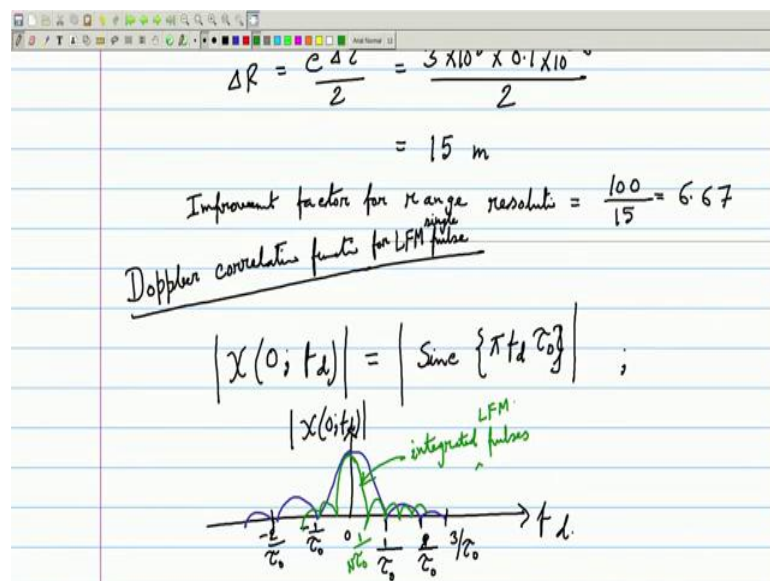 ΔR = cΔτ/2 = 3 × 10⁸ × 0.1 × 10⁻⁶/2
= 15 m
Improvemt factor for range resoluti = 100/15 = 6.67
Doppler correlatio functi for LFM single pulse
|χ(0; f_d)| = |Sinc {π f_d τ₀}| ;
|χ(0; f_d)|
LFM
integrated pulses
-2/τ₀ -1/τ₀ 0 1/Nτ₀ 1/τ₀ 2/τ₀ 3/τ₀ f_d